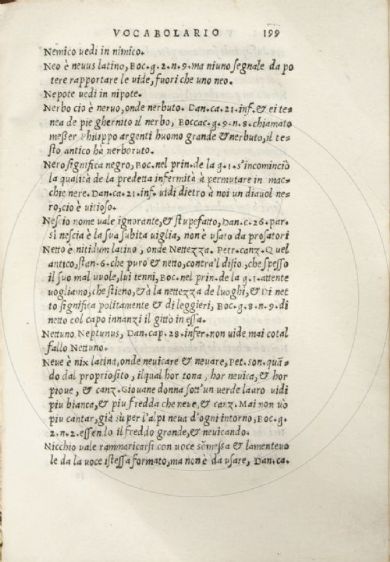 VOCABOLARIO 199
Nemico uedi in nimico.
Neo è neuus latino, Boc.g.2.n.9.ma niuno segnale da po
tere rapportare le uide, fuori che uno neo.
Nepote uedi in nipote.
Nerbo cio è neruo, onde nerbuto. Dan.ca.21.inf.& ei te
nea de pie ghermito il nerbo, Boccac.g.9.n.8.chiamato
meßer Philippo argenti huomo grande & nerbuto, il te
sto antico hà nerboruto.
Nero significa negro, Boc.nel prin.de la g.1.s'incominciò
la qualità de la predetta infermità à permutare in mac
chie nere. Dan.ca.21.inf. uidi dietro à noi un diauol ne
ro, cio è uitioso.
Nescio nome uale ignorante, & stupefatto, Dan.c.26.par.
si nescia è la sua subita uiglia, non è usato da prosatori
Netto è nitidum latino, onde Nettezza. Petr.canz.Quel
antico, stan.6.che puro & netto, contra'l disio, che spesso
il suo mal uuole, lui tenni, Boc.nel prin.de la g.1.attente
uogliamo, che stieno, & à la nettezza de luoghi, & Di net
to significa politamente & di leggieri, Boc.g.8.n.9.di
netto col capo innanzi il gittò in essa.
Nettuno Neptunus, Dan.cap.28.infer.non uide mai cotal
fallo Nettuno.
Neue è nix latina, onde neuicare & neuare, Pet.son.quā
do dal proprio sito, il qual hor tona, hor neuica, & hor
pioue, & canz. Giouane donna sott'un uerde lauro uidi
piu bianca, & piu fredda che neue, & canz. Mai non uò
piu cantar, già sù per l'alpi neua d'ogni intorno, Boc.g.
2.n.2.essendo il freddo grande, & neuicando.
Nicchio uale rammaricarsi con uoce & lamenteuo
le da la uoce istessa formato, ma non è da usare, Dan.ca.